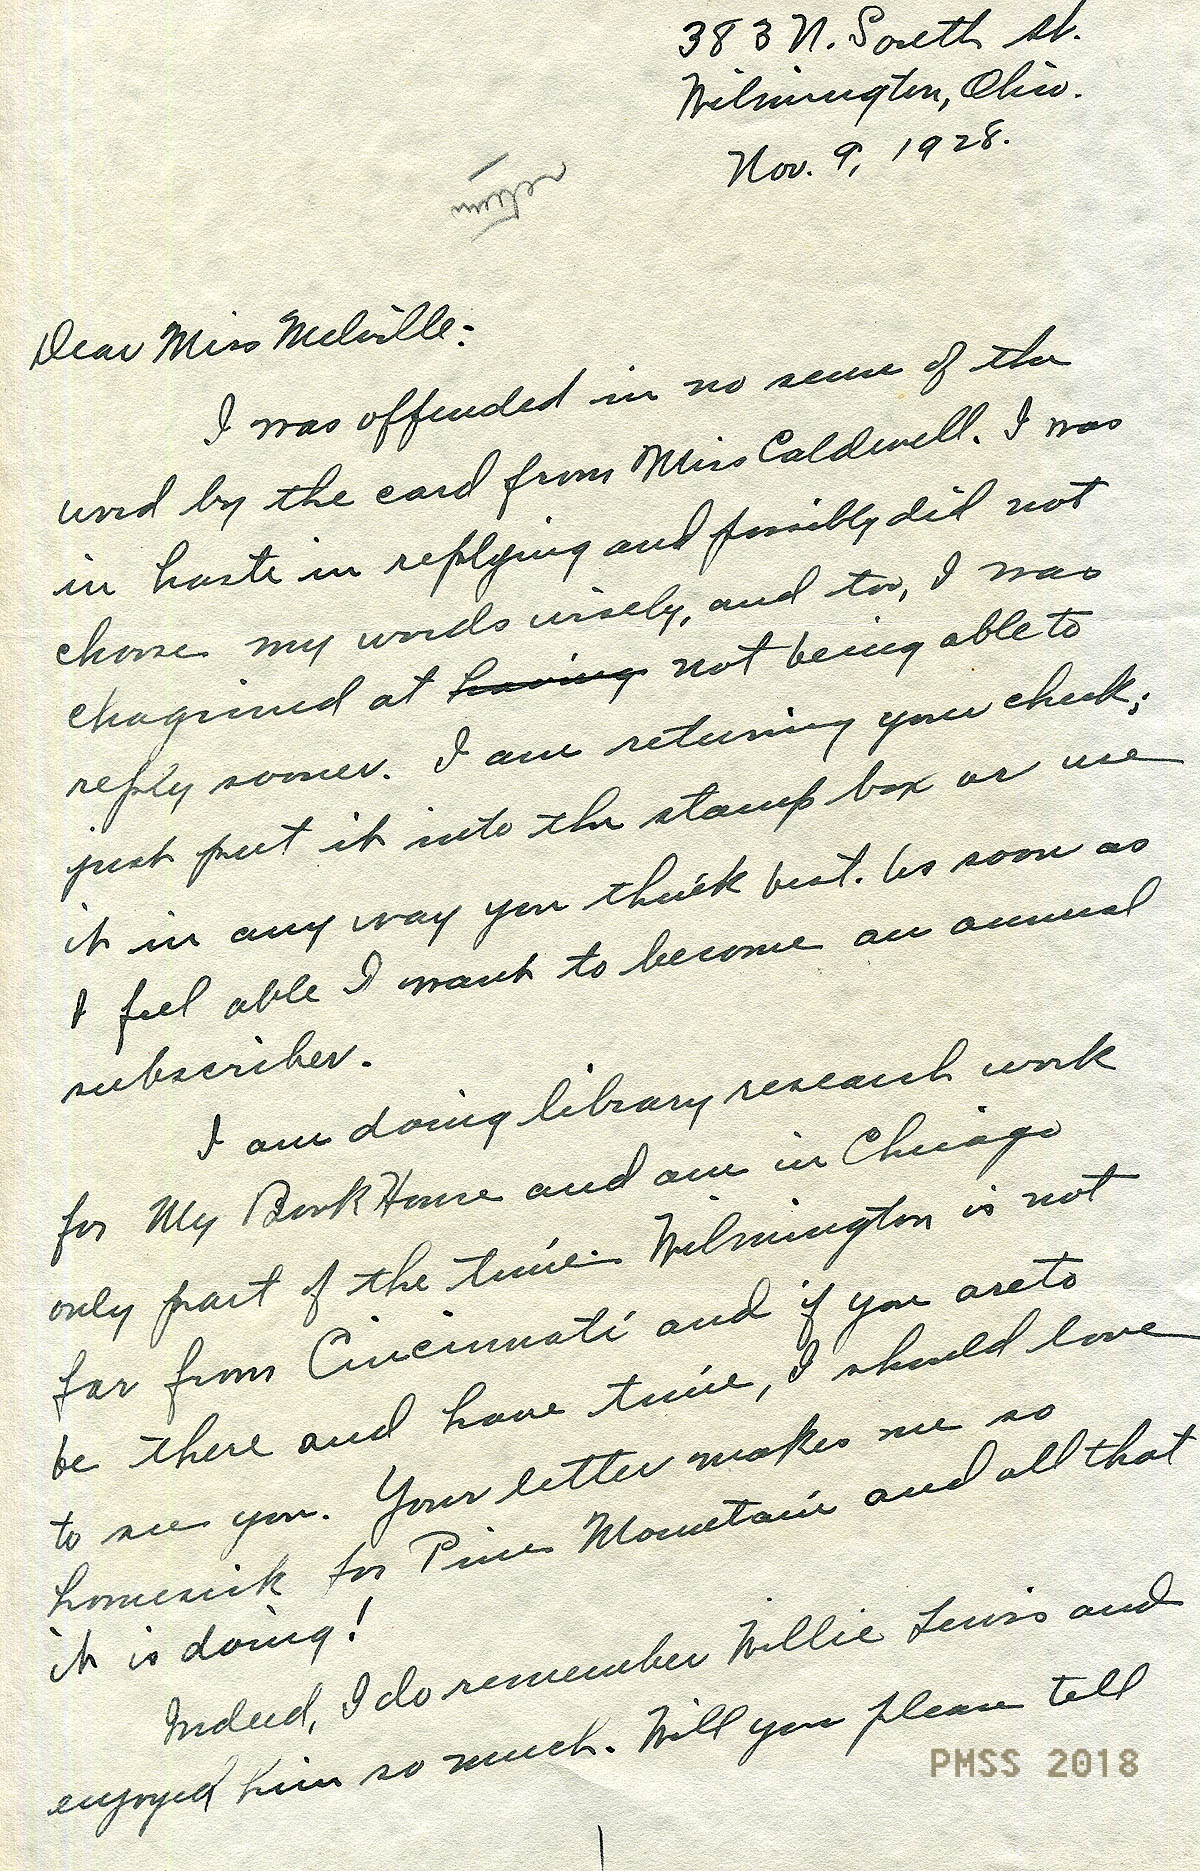 383 N. South St.
Wilmington, Ohio.
Nov. 9, 1928.
Dear Miss Melville:
I was offended in no sense of the
word by the card from Miss Caldwell. I was
in haste in replying and possibly did not
choose my words wisely, and too, I was
chagrined at having not being able to
reply sooner. I am returning your check;
just put it into the stamp box or use
it in any way you think best. As soon as
I feel able I want to become an annual
subscriber.
I am doing library research work
for My Book House and am in Chicago
only part of the time. Wilmington is not
far from Cincinnati and if you are to
be there and have time, I should love
to see you. Your letter makes me so
homesick for Pine Mountain and all that
it is doing!
Indeed, I do remember Willie Lewis and
enjoyed him so much. Will you please tell
PMSS 2018